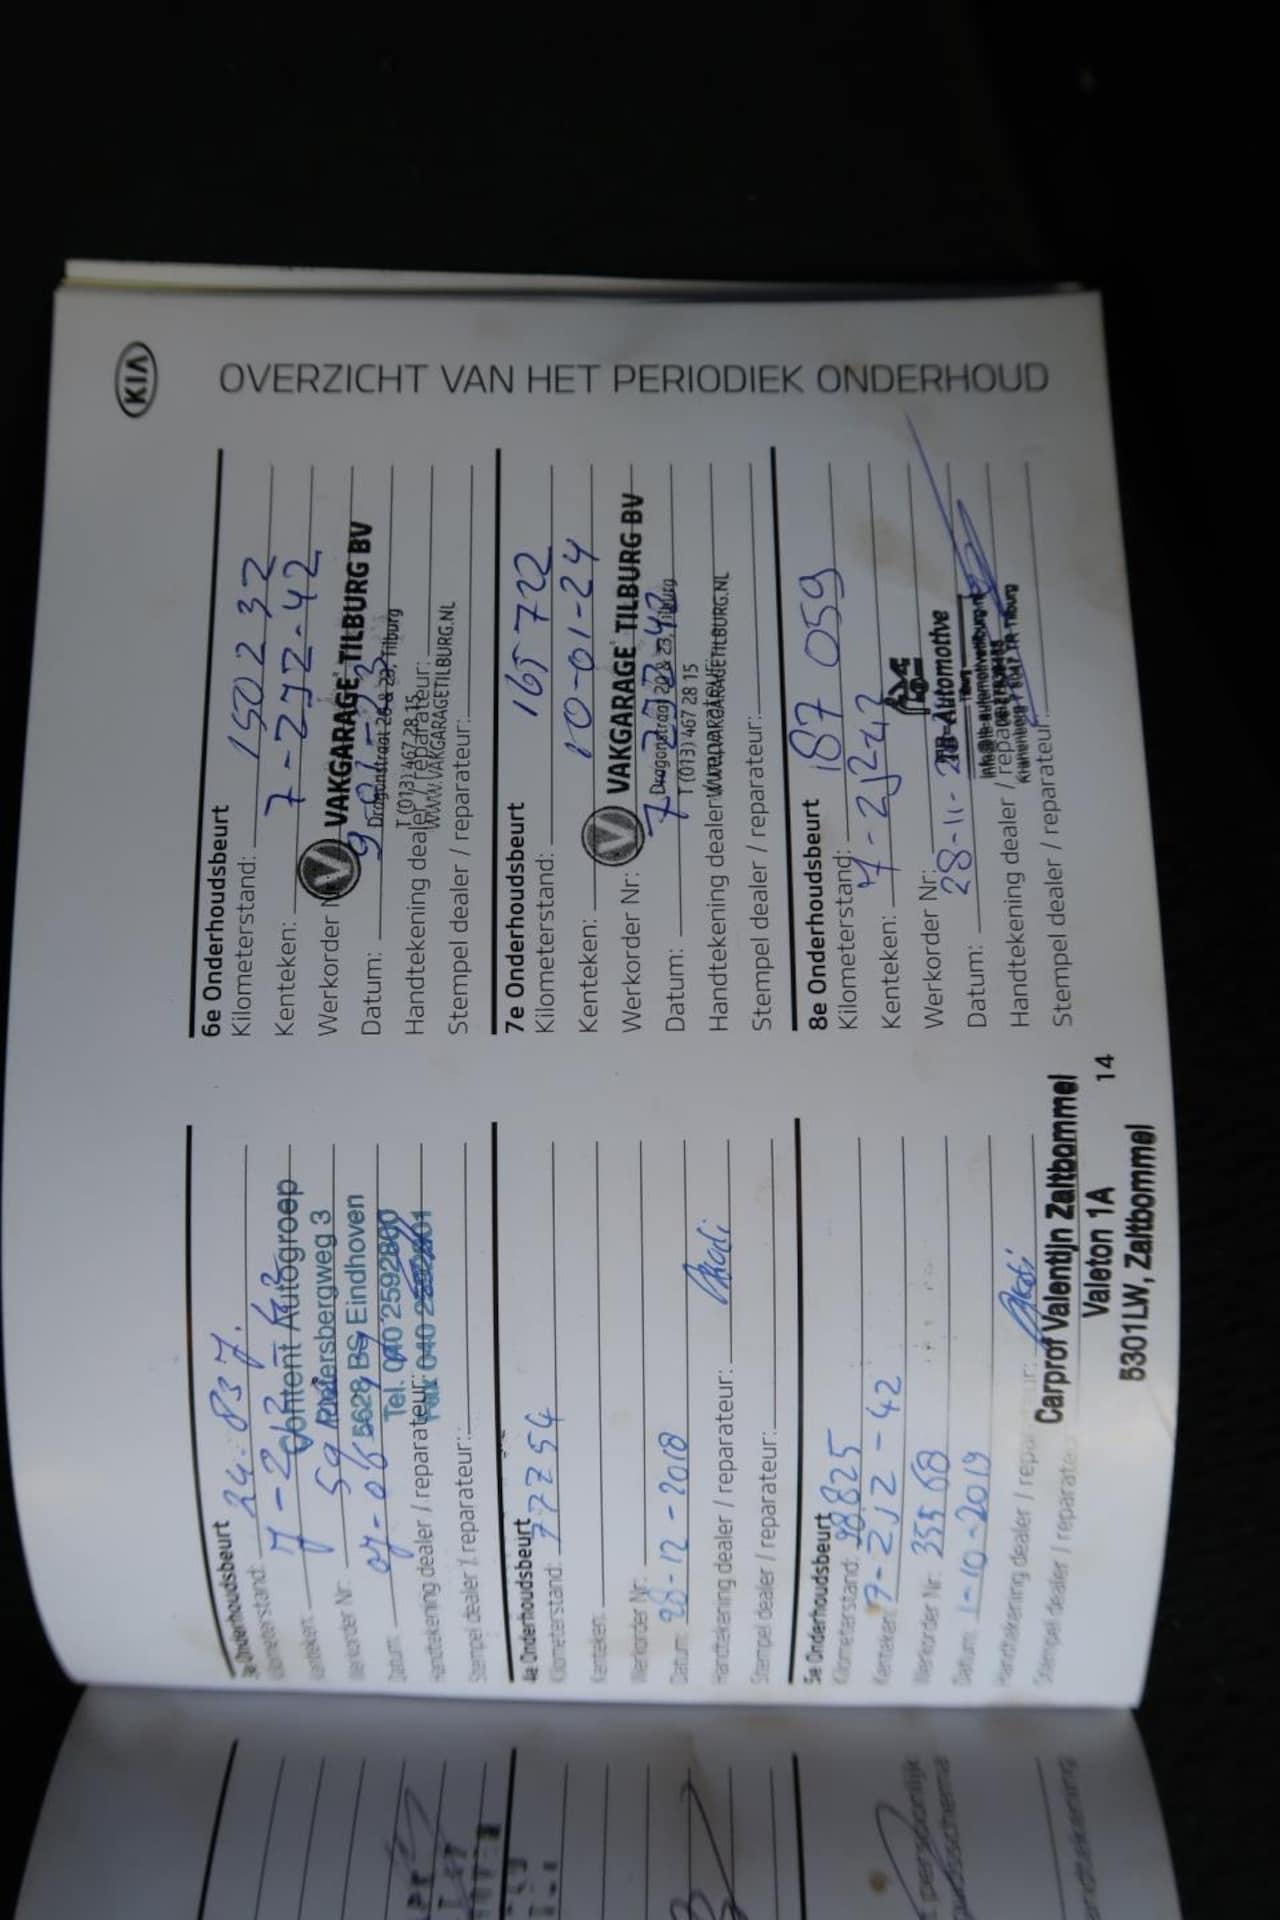 KIA
OVERZICHT VAN HET PERIODIEK ONDERHOUD
3e Onderhoudsbeurt
Kilometerstand: 24.837.
Kenteken:
Content Autogroep
Werkorder Nr:
Pietersbergweg 3
5628 BS Eindhoven
Datum:
Tel. 040 2592800
Handtekening dealer / reparateur:
Fax 040
Stempel dealer / reparateur:
4e Onderhoudsbeurt
Kilometerstand: 77254
Kenteken:
Werkorder Nr:
Datum: 28-12-2018
Handtekening dealer / reparateur:
Stempel dealer / reparateur:
5e Onderhoudsbeurt
Kilometerstand: 98825
Kenteken: 7-ZJZ-42
Werkorder Nr: 35568
Datum: 1-10-2019
Handtekening dealer / reparateur:
Stempel dealer / reparateur:
Carprof Valentijn Zaltbommel
Valeton 1A
5301LW, Zaltbommel
14
6e Onderhoudsbeurt
Kilometerstand: 150232
Kenteken: 7-ZJZ-42
Werkorder Nr:
VAKGARAGE TILBURG BV
Datum: 9-01-23
Dragonstraat 20 & 23, Tilburg
T (013) 467 28 15
Handtekening dealer / reparateur:
WWW.VAKGARAGETILBURG.NL
Stempel dealer / reparateur:
7e Onderhoudsbeurt
Kilometerstand: 165722
Kenteken: 10-01-24
Werkorder Nr:
VAKGARAGE TILBURG BV
Datum:
Dragonstraat 20 & 23, Tilburg
T (013) 467 28 15
Handtekening dealer / reparateur:
WWW.VAKGARAGETILBURG.NL
Stempel dealer / reparateur:
8e Onderhoudsbeurt
Kilometerstand: 187 059
Kenteken: 7-ZJZ-42
Werkorder Nr:
Automotive
Datum: 28-11-
Handtekening dealer / reparateur:
Tilburg
Stempel dealer / reparateur:
persoonlijk